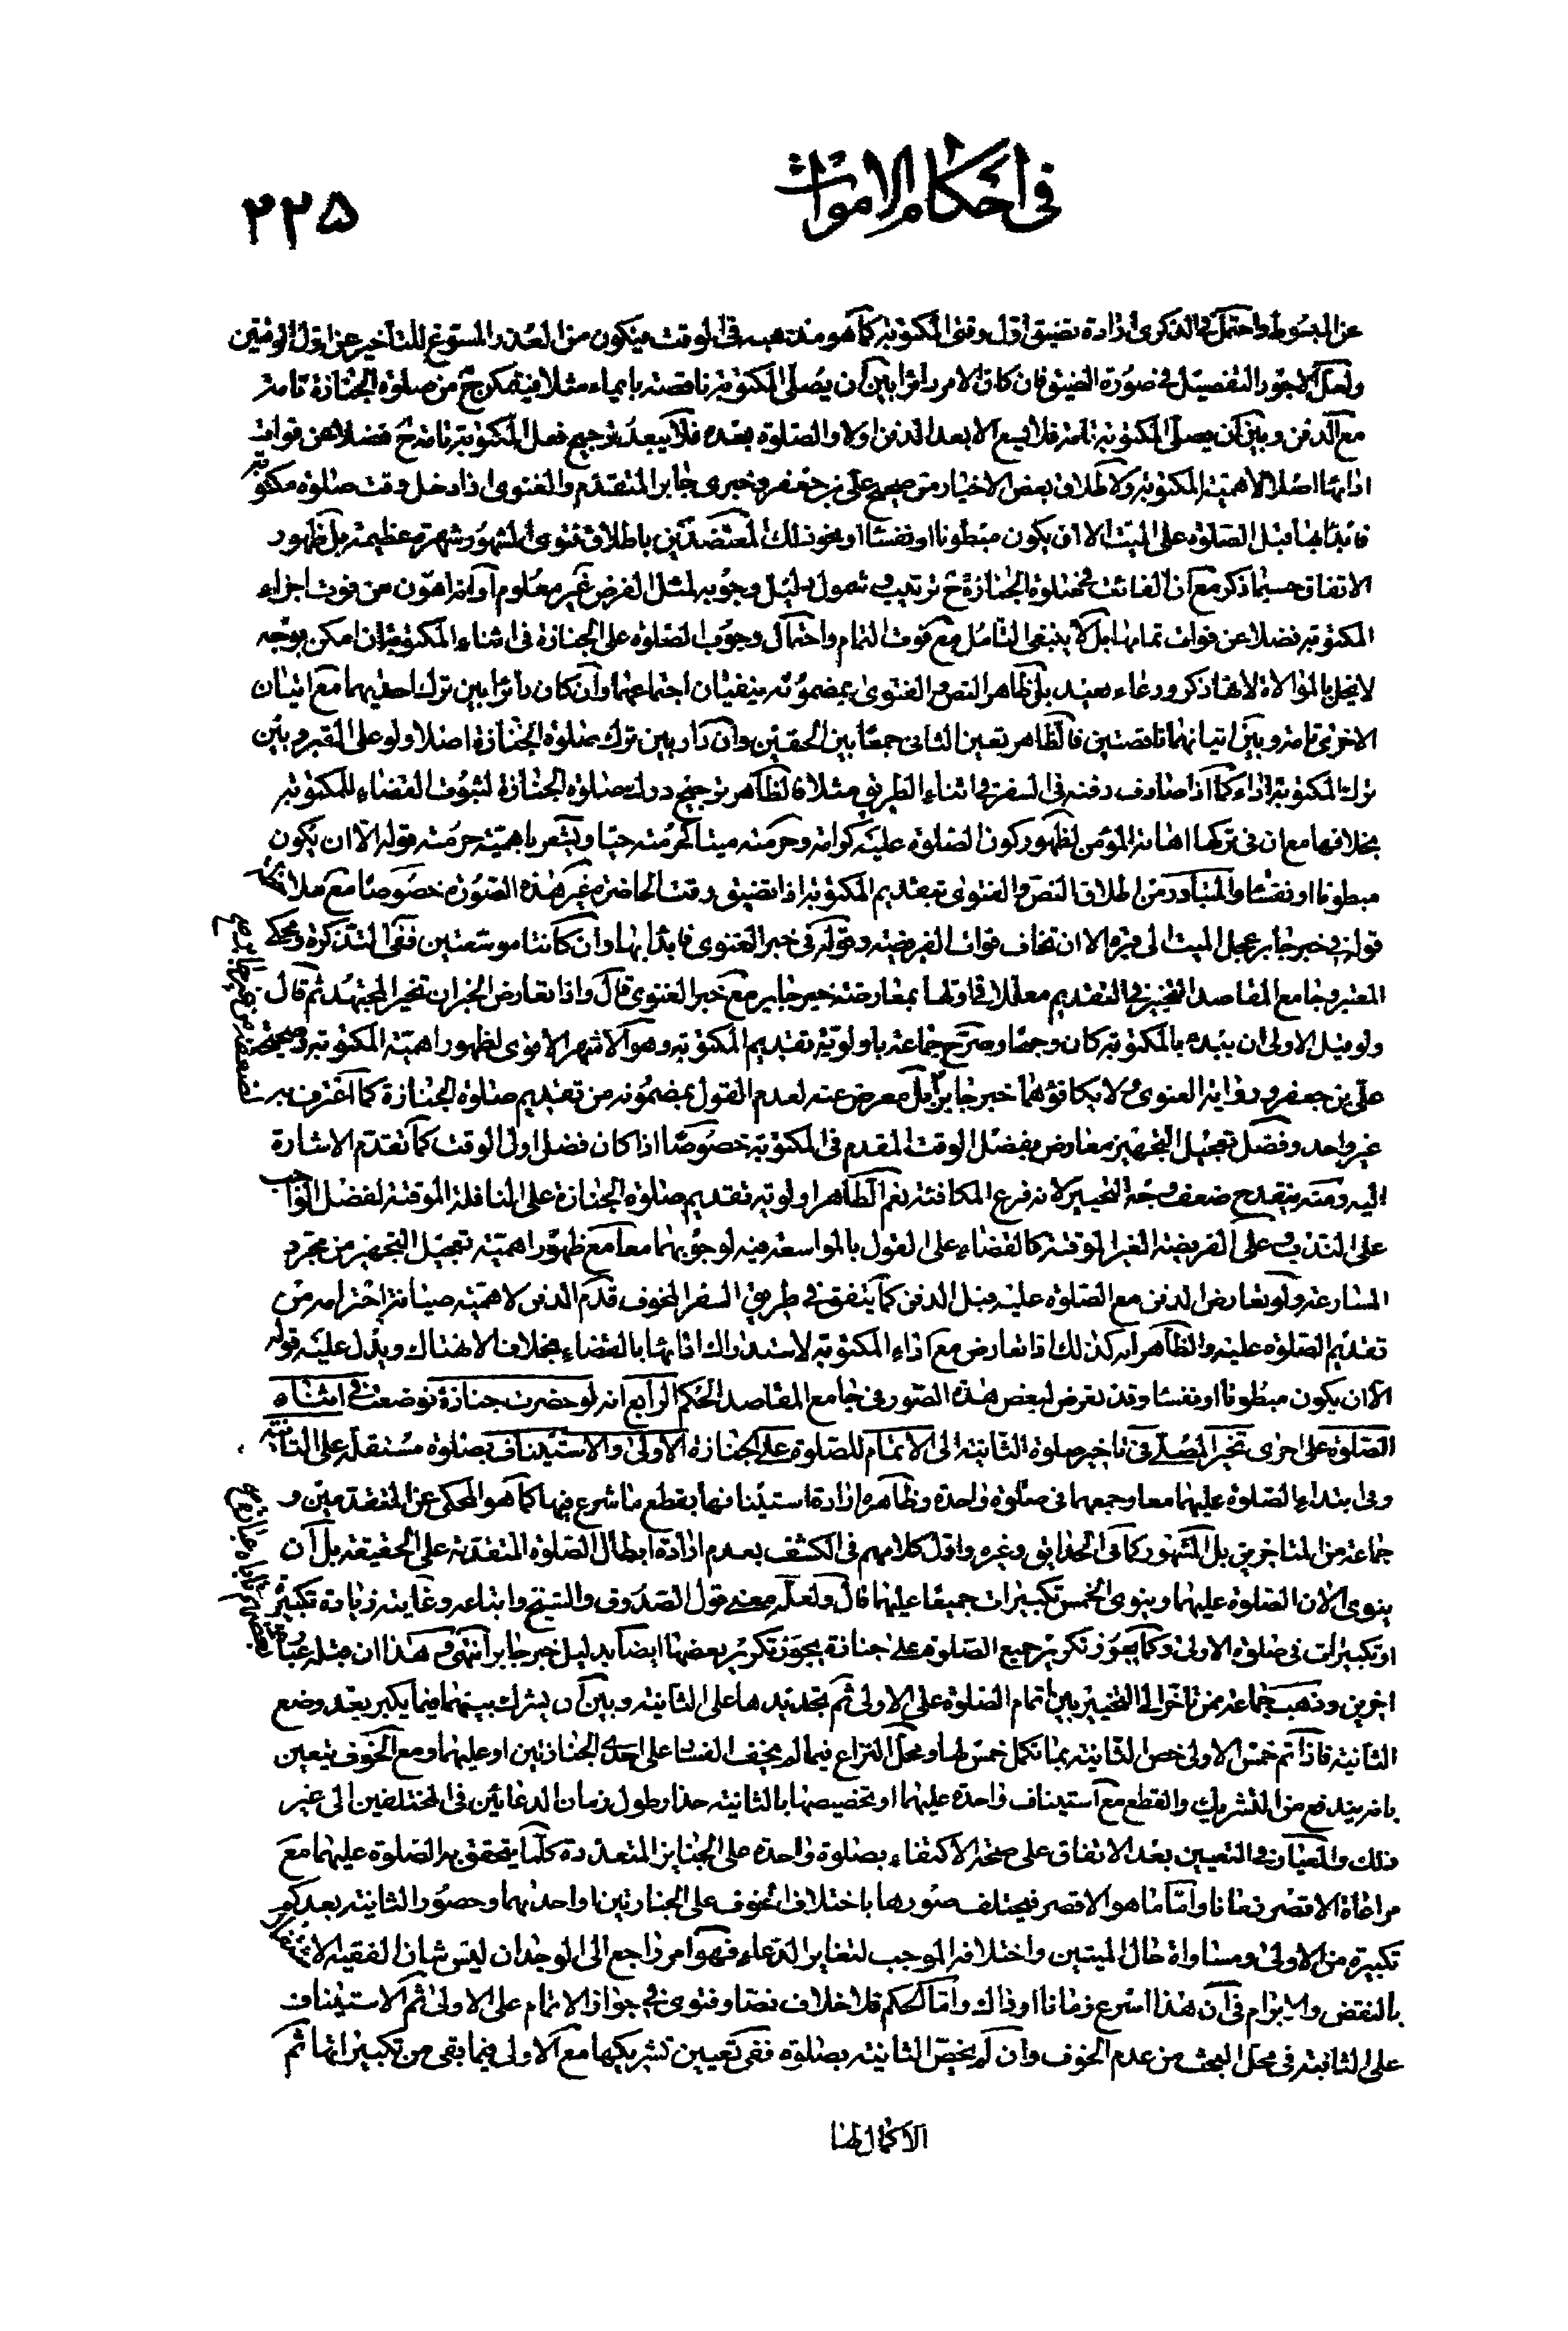 في احكام الاموات
٢٢٥
عن المبسوط واحتمل في الذكرى ارادة تضيق اول وقتي المكتوبة كما هو مذهبه في الوقت فيكون من العذر المسوغ للتأخير عن اول الوقتين
ولعل الاجود التفصيل في صورة الضيق فان كان الامر دائرا بين ان يصلى المكتوبة ناقصة بايماء مثلا فيتمكن ح من صلوة الجنازة تامة
مع الدفن وبين ان يصلى المكتوبة تامة فلا يسع الا بعد الدفن اولا والصلوة بعده فلا يبعد ترجيح فعل المكتوبة تامة ح فضلا عن فوات
ادائها اصلا لاهمية المكتوبة ولاطلاق بعض الاخبار من صحيح علي بن جعفر وخبري جابر المتقدم والغنوى اذا دخل وقت صلوة مكتوبة
فابدأ بها قبل الصلوة على الميت الا ان يكون مبطونا او نفسا او نحو ذلك المعتضدين باطلاق فتوى المشهور شهرة عظيمة بل ظهور
الاتفاق حسبما ذكر مع ان الفائت في صلوة الجنازة ح ترتيب وشمول دليل وجوبه لمثل الفرض غير معلوم او انه اهون من فوت اجزاء
المكتوبة فضلا عن فوات تمامها بل لا ينبغي التأمل مع فوت التمام واحتمال وجوب الصلوة على الجنازة في اثناء المكتوبة ان امكن بوجه
لا يخل بالموالاة لانها ذكر ودعاء بعيد بل ظاهر النص والفتوى بمضمونه ينفيان اجتماعهما وان كان دائرا بين ترك احديهما مع اتيان
الاخرى تامة وبين اتيانهما ناقصتين فالظاهر تعين الثاني جمعا بين الحقين وان دار بين ترك صلوة الجنازة اصلا ولو على القبر وبين
ترك المكتوبة اداء كما اذا صادف دفنه في السفر في اثناء الطريق مثلا فالظاهر ترجيح درك صلوة الجنازة لثبوت القضاء للمكتوبة
بخلافها مع ان في تركها اهانة المؤمن لظهور كون الصلوة عليه كرامة وحرمته ميتا كحرمته حيا ويشعر باهمية حرمته قوله الا ان يكون
مبطونا او نفسا والمتبادر من اطلاق النص والفتوى بتقديم المكتوبة اذا تضيق وقت الحاضرة غير هذه الصورة خصوصا مع ملاحظة
قوله في خبر جابر عجل الميت الى قبره الا ان تخاف فوات الفريضة وقوله في خبر الغنوى فابدأ بها وان كانتا موسعتين ففي التذكرة ومحكي
المعتبر وجامع المقاصد التخيير في التقديم معللا في اولها بمعارضة خبر جابر مع خبر الغنوى قال واذا تعارض الخبران تخير المجتهد ثم قال
ولو قيل الاولى ان يبدء بالمكتوبة كان وجها وصرح جماعة باولوية تقديم المكتوبة وهو الاشهر الاقوى لظهور اهمية المكتوبة وصحيحة
علي بن جعفر ورواية الغنوى ولا يكافؤهما خبر جابر بل معرض عنه لعدم القول بمضمونه من تقديم صلوة الجنازة كما اعترف به
غير واحد وفضل تعجيل التجهيز معارض بفضل الوقت المقدم في المكتوبة خصوصا اذا كان فضل اول الوقت كما تقدم الاشارة
اليه ومنه ينقدح ضعف وجه التخيير لانه فرع المكافئة نعم الظاهر اولوية تقديم صلوة الجنازة على النافلة الموقتة لفضل الواجب
على الندب وعلى الفريضة الغير الموقتة كالقضاء على القول بالمواسعة فيه لوجوبهما معا مع ظهور اهمية تعجيل التجهيز من مجرد
المسارعة ولو تعارض الدفن مع الصلوة عليه قبل الدفن كما يتفق في طريق السفر المخوف قدم الدفن لاهمية صيانة احترامه من
تقديم الصلوة عليه والظاهر انه كذلك اذا تعارض مع اداء المكتوبة لاستدراك ادائها بالقضاء بخلاف الانهتاك ويدل عليه قوله
الا ان يكون مبطونا او نفسا وقد تعرض لبعض هذه الصور في جامع المقاصد الحكم الرابع انه لو حضرت جنازة فوضعت في اثناء
الصلوة على اخرى تخير المصلى في تاخير صلوة الثانية الى الاتمام للصلوة على الجنازة الاولى والاستيناف بصلوة مستقلة على الثانية
وفي ابتداء الصلوة عليهما معا وجمعهما في صلوة واحدة وظاهره ارادة استينافها بقطع ما شرع فيها كما هو المحكي عن المتقدمين و
جماعة من المتاخرين بل المشهور كما في الحدائق وغيره واول كلامهم في الكشف بعدم ارادة ابطال الصلوة المتقدمة على الحقيقة بل ان
ينوى الان الصلوة عليهما وينوى الخمس تكبيرات جميعا عليهما قال ولعله معنى قول الصدوق والشيخ واتباعه وغايته زيادة تكبير
او تكبيرات في صلوة الاولى وكما يجوز تكرير جميع الصلوة على جنازة يجوز تكرير بعضها ايضا بدليل خبر جابر انتهى وهذا
اخرين وذهب جماعة ممن تاخر الى التخيير بين اتمام الصلوة على الاولى ثم تجديدها على الثانية وبين ان يشرك بينهما فيما يكبر بعد وضع
الثانية فاذا تم خمس الاولى خص الثانية بما تكمل خمس لها ومحل النزاع فيما لم يخف الفساد على احدى الجنازتين او عليهما ومع الخوف يتعين
ما به يندفع من التشريك والقطع مع استيناف واحدة عليهما او تخصيصها بالثانية حذار طول زمان الدعائين في المختلفين الى غير
ذلك والمعيار في التعيين بعد الاتفاق على صحة الاكتفاء بصلوة واحدة على الجنايز المتعددة كلما يتحقق به الصلوة عليهما مع
مراعاة الاقصر زمانا واما ما هو الاقصر فيختلف صورها باختلاف الخوف على الجنازتين او احديهما وحضور الثانية بعد
تكبيرة من الاولى ومساواة حال الميتين واختلافه الموجب لتغاير الدعاء فهو امر راجع الى الوجدان ليس شان الفقيه
بالنقض والابرام في ان هذا اسرع زمانا او ذاك واما الحكم فلا خلاف نصا وفتوى في جواز الاتمام على الاولى ثم الاستيناف
على الثانية في محل البحث من عدم الخوف وان لم يخص الثانية بصلوة ففي تعيين تشريكها مع الاولى فيما بقى من تكبيراتها ثم
الاكمال لها